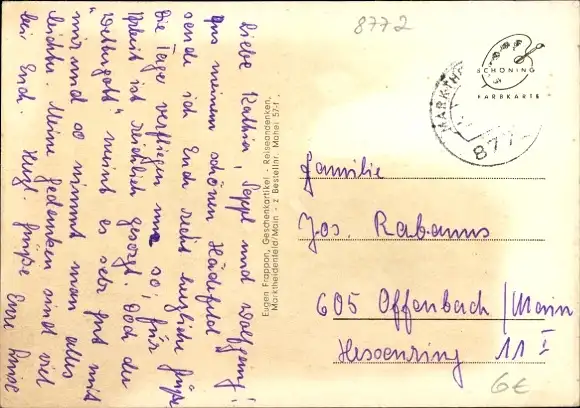 8772
Liebe Kathia, Seppl und Wolfgang!
Aus meinem schönen Hädefeld
sende ich Euch recht herzliche Grüße
die Tage verfliegen nur so; für
Arbeit ist reichlich gesorgt. Doch der
"Wettergott" meint es sehr gut mit
mir und so nimmt man alles
leichter. Meine Gedanken sind viel
bei Euch. Herzl. Grüße Eure
Eugen Frappon, Geschenkartikel - Reiseandenken,
Marktheidenfeld/Main - z Bestellnr. Mahei 57-f
SCHÖNING
FARBKARTE
MARKTH
877
Familie
Jos. Rabanus
605 Offenbach/Main
Hessenring 11 I
6€